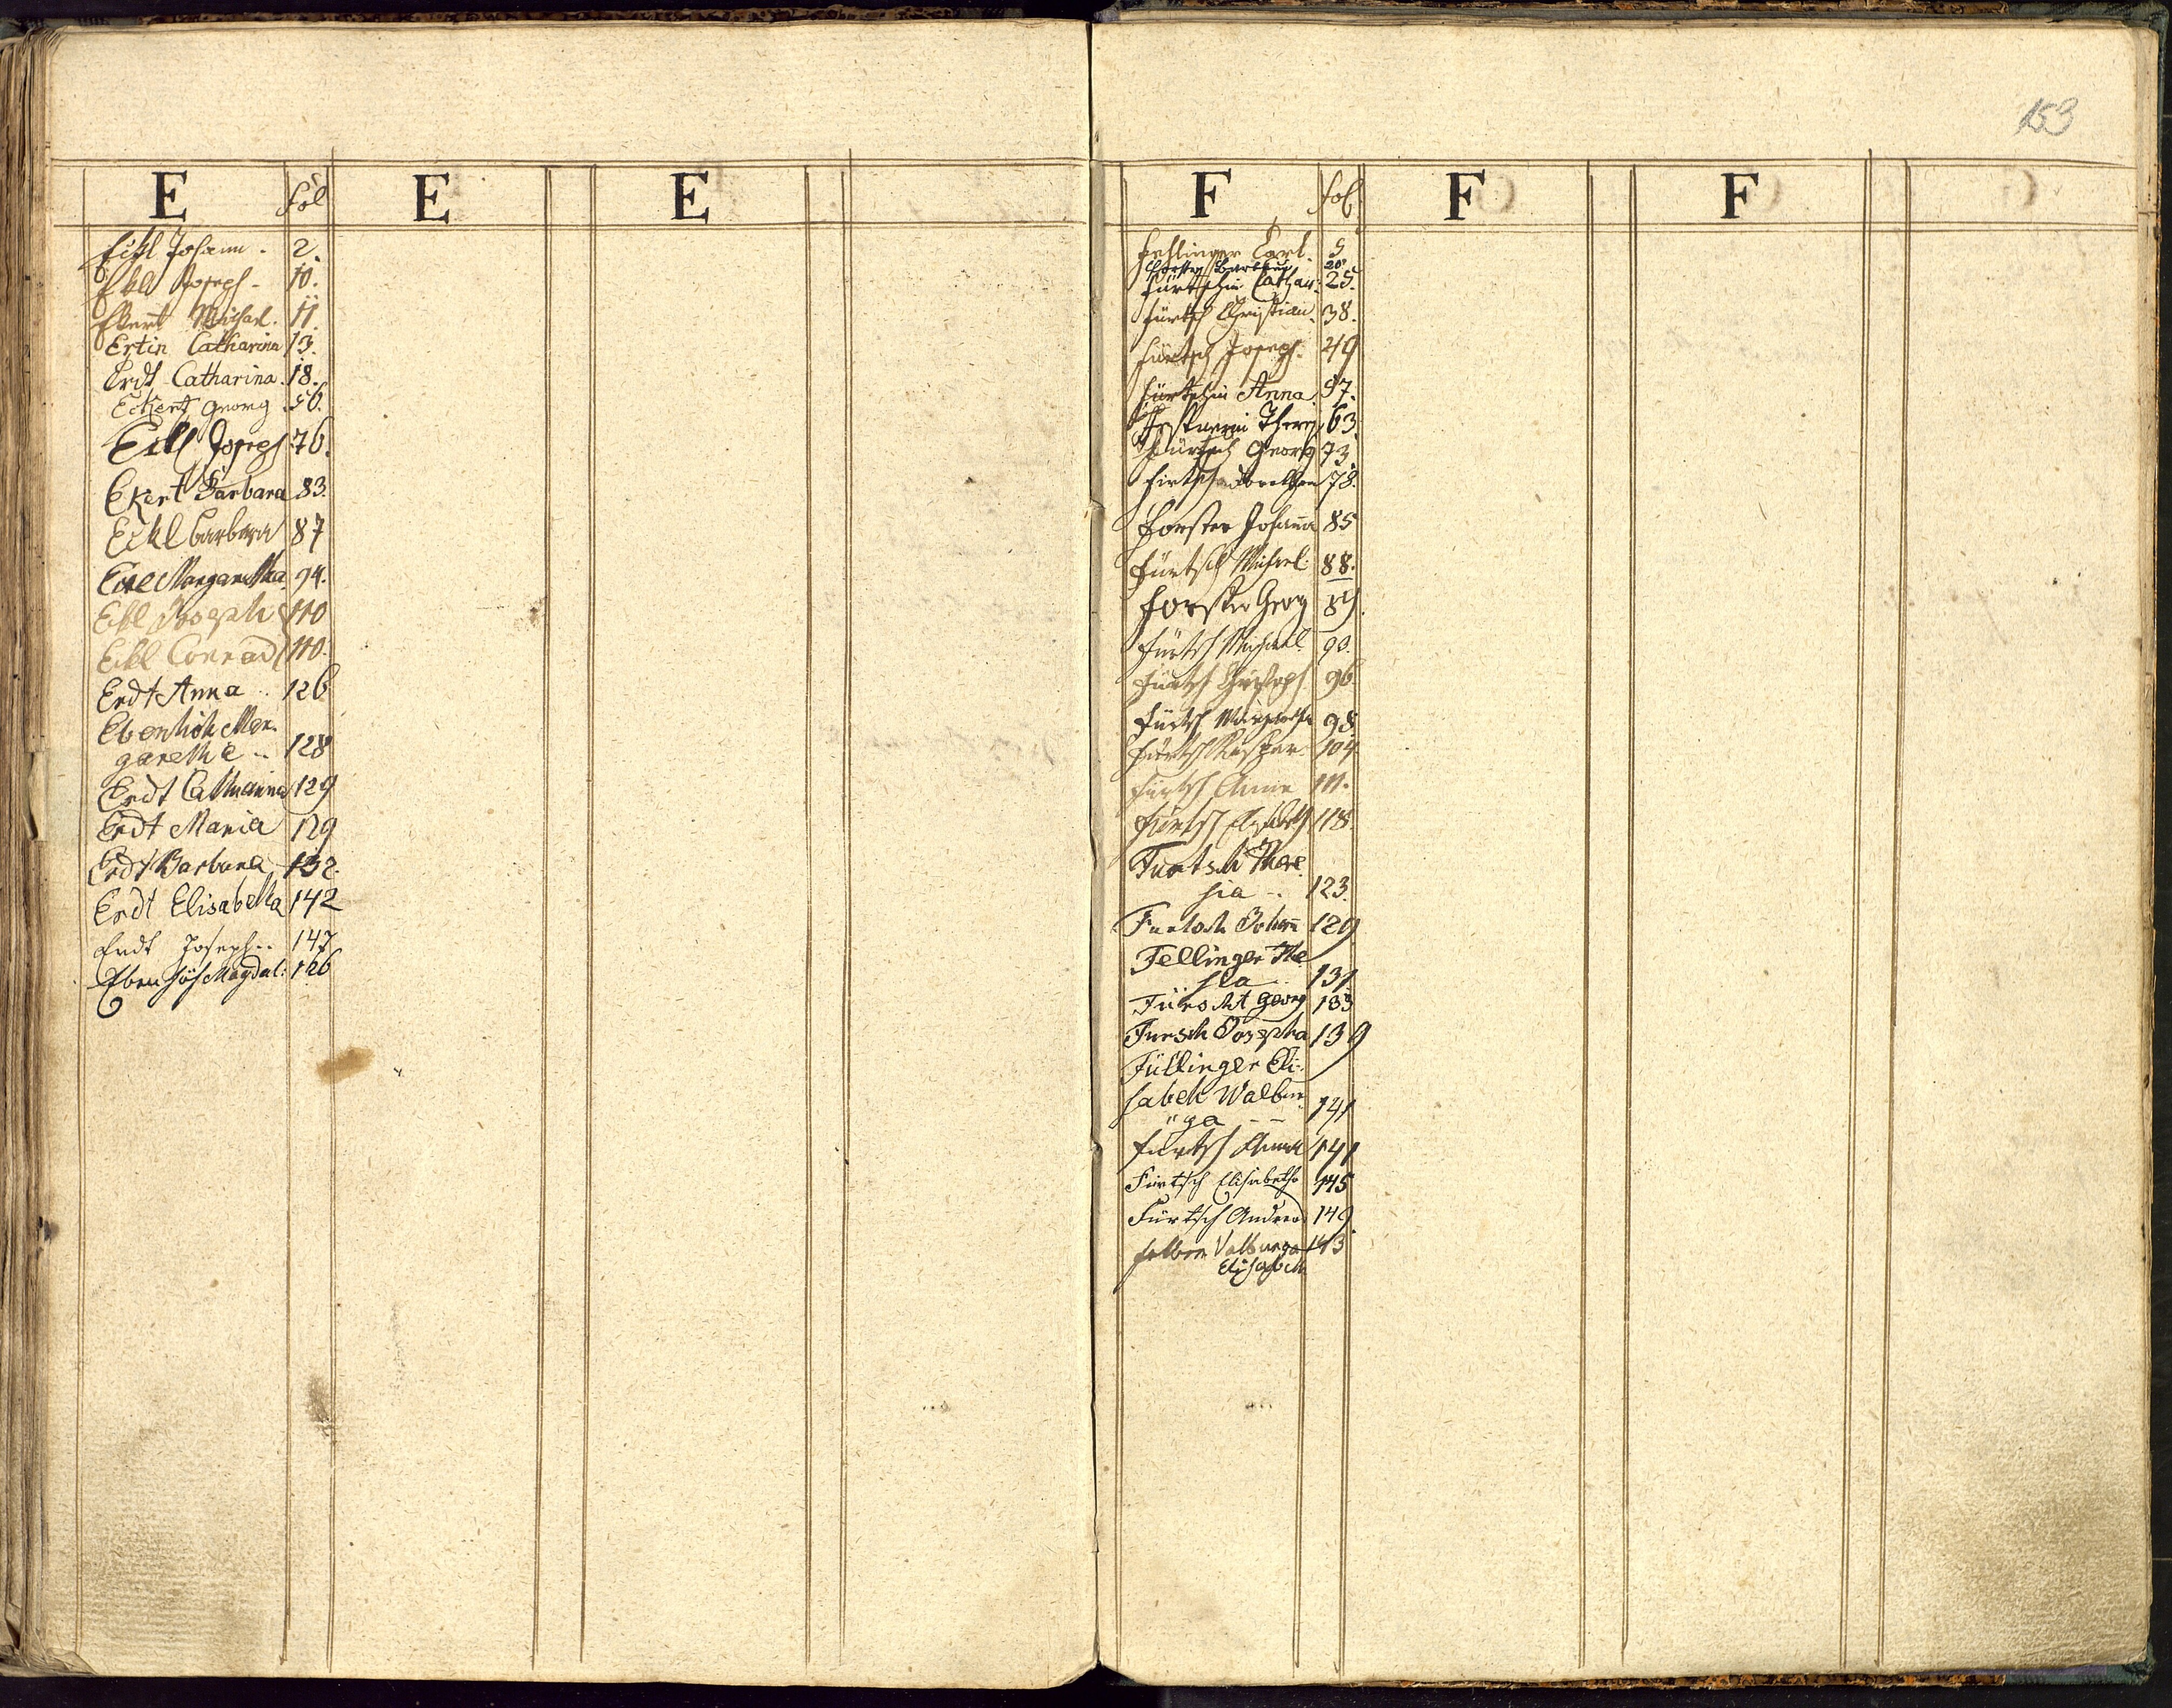 E Fol E E
Eckl Johann. 2.
Ekl Joseph. 10.
Ekert Michael. 11.
Ertin Catharina 13.
Erdt Catharina. 18.
Eckert Georg 56.
Eckl Joseph 76.
Ekert Barbara 83.
Eckl Barbara 87
Eckl Margaretha 94.
Eckl Joseph 110
Eckl Conrad 110.
Erdt Anna .. 126
Ebenhöh Mar-
garethe .. 128
Erdt Catharina 129
Erdt Maria 129
Erdt Barbara 132.
Erdt Elisabetha 142
Erdt Joseph .. 147
Ebenhöh Magdal: 126
153
F Fol F F
Fehlinger Carl. 5
Forster Barbara 20
Fürtschin Cathar: 25.
Fürtsch Christian. 38.
Fürtsch Joseph. 49
Fürtschin Anna. 57.
Theres 63
Fürtsch Georg 73.
Firtsch Dorothea 78.
Forster Johanna 85
Fürtsch Michael 88.
Forster Georg 89.
Fürtsch Michael 90.
Fürtsch Christoph 96
Fürtsch Margaretha 98.
Fürtsch Kaspar 104
Fürtsch Anna 111.
Fürtsch Elisabeth 118.
Furtsch There-
sia .. 123.
Furtsch Johann 129
Fellinger The-
sia .. 131
Georg 133
Fursch Josepha 139
Füllinger Eli-
sabeth Walbur-
ga -- 141
Furtsch Anna 141
Fürtsch Elisabetha 145
Fürtsch Andreas 149
Walburga 143
Elisabeth